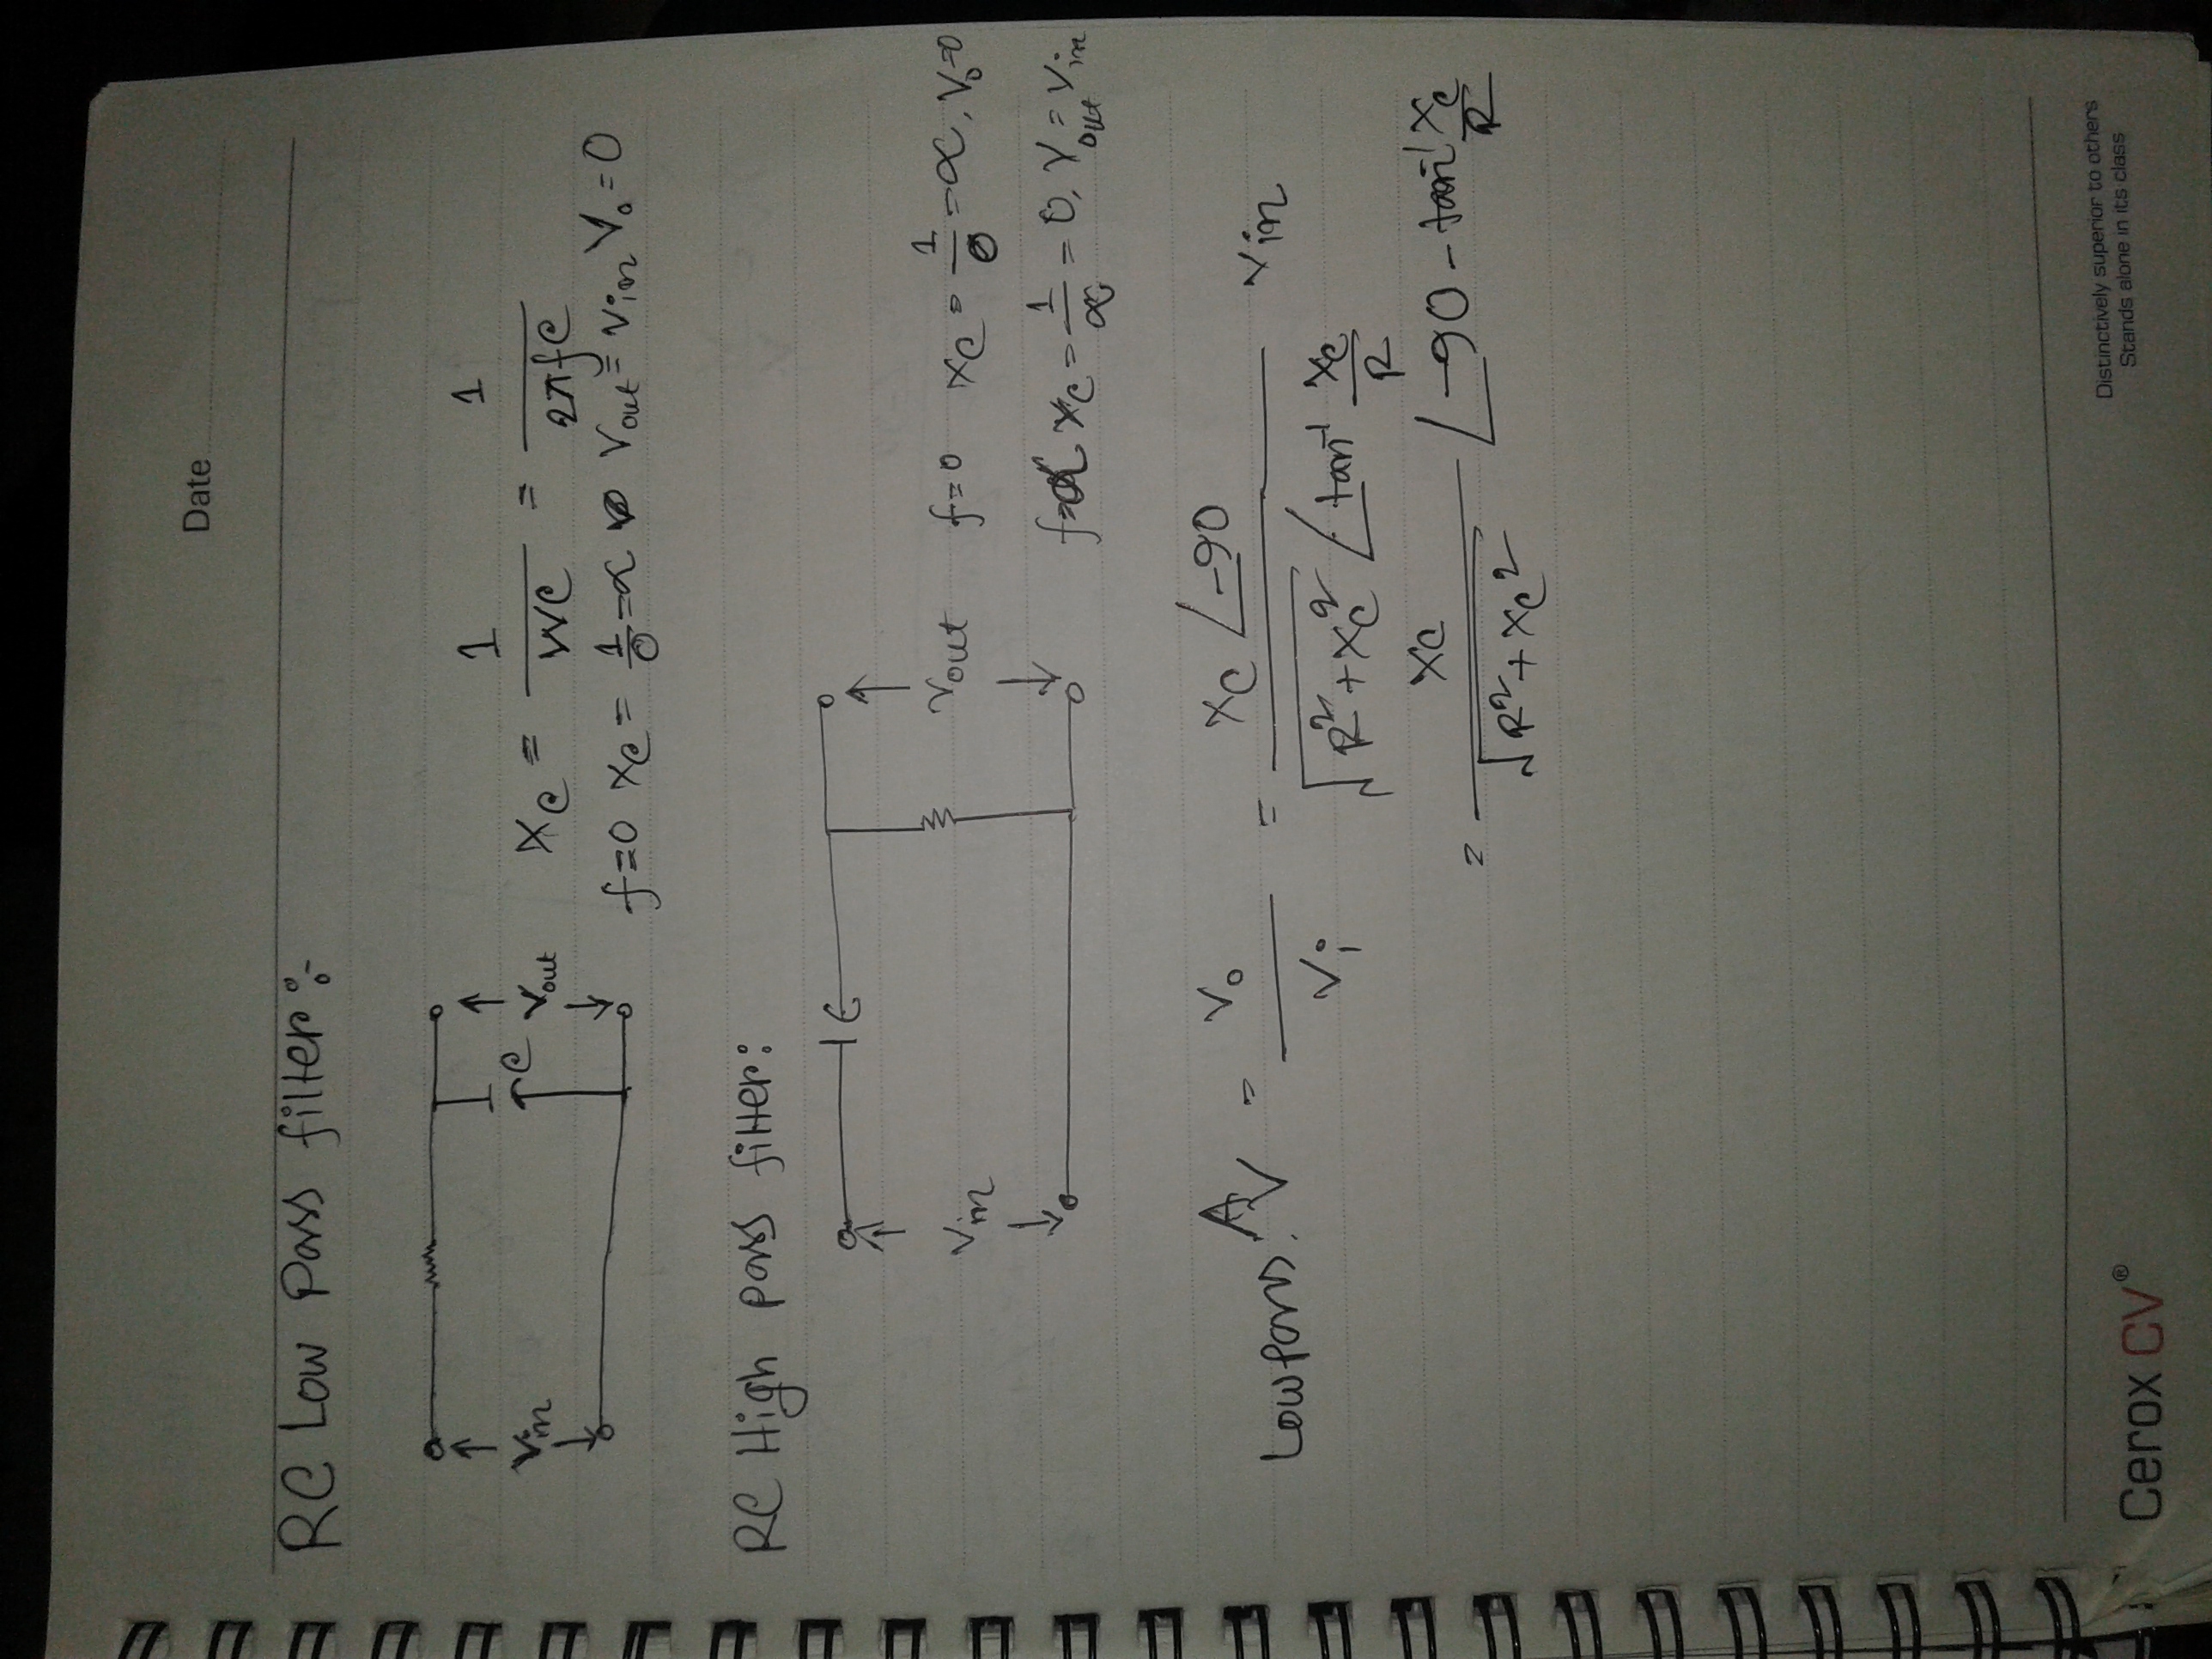 Date
RC Low Pass filter:-
Vin
C
Vout
Xc = 1/WC = 1/2πfC
f=0 Xc = 1/0 = α Vout = Vin Vo = 0
RC High pass filter:
Vin
C
Vout
f=0 Xc = 1/0 = α, Vo=0
f=α Xc = 1/α = 0, Vout = Vin
Low pass: Av = Vo/Vi = Xc ∠-90 / √R²+Xc² ∠tan⁻¹ Xc/R Vin
= Xc / √R²+Xc² ∠-90 - tan⁻¹ Xc/R
Cerox CV®
Distinctively superior to others
Stands alone in its class